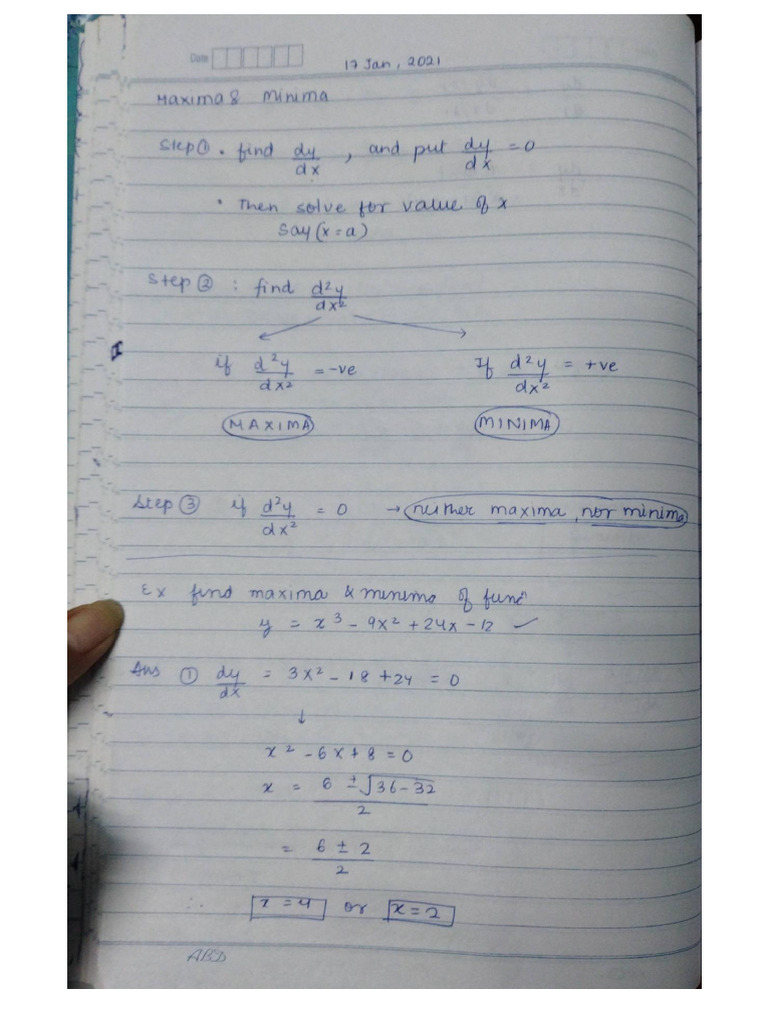 Date
17 Jan, 2021
Maxima & Minima
Step ① • find dy/dx , and put dy/dx = 0
• Then solve for value of x
Say (x = a)
Step ② : find d²y/dx²
if d²y/dx² = -ve If d²y/dx² = +ve
MAXIMA MINIMA
Step ③ if d²y/dx² = 0 → neither maxima, nor minima
Ex find maxima & minima of funⁿ
y = x³ - 9x² + 24x - 12 ✓
Ans ① dy/dx = 3x² - 18 + 24 = 0
↓
x² - 6x + 8 = 0
x = 6 ± √36 - 32 / 2
= 6 ± 2 / 2
∴ x = 4 or x = 2
ABD